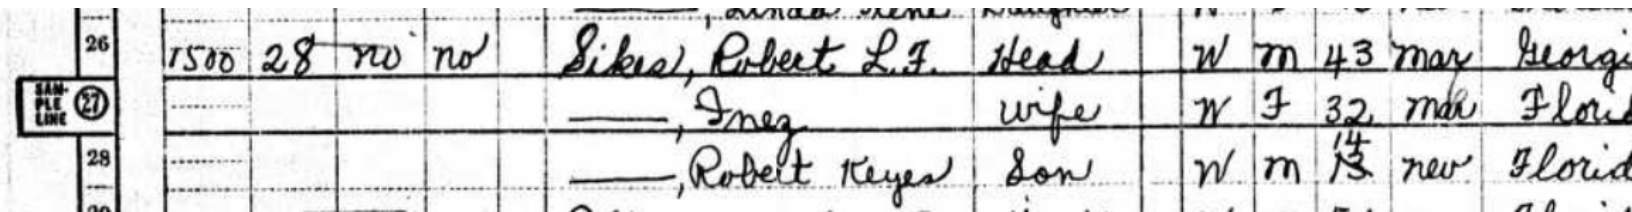 Linda Irene Daughter W
26 1500 28 no no Sikes, Robert L.F. Head W M 43 Mar Georgi
SAM-PLE LINE 27 ——, Inez wife W F 32 Mar Florid
14
28 ——, Robert Keyes Son W M 13 nev Florid